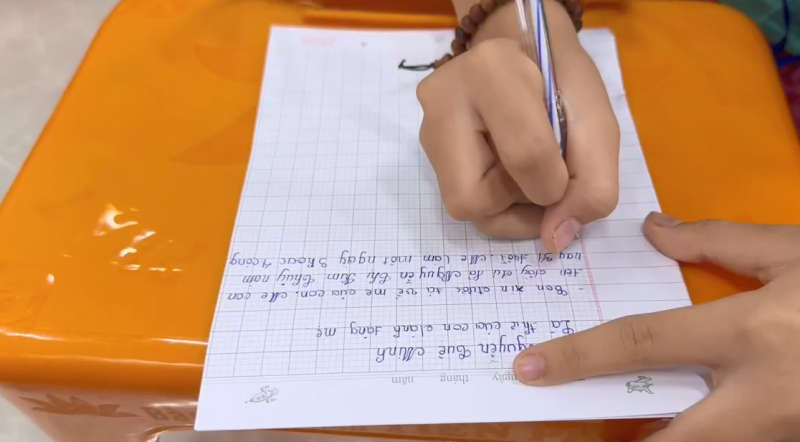 ngày tháng năm
Nguyễn Quế Minh
Lá thư của con dành tặng mẹ
- Con xin được tả về mẹ của con. Mẹ con
tên đầy đủ là Nguyễn Thị Kim Thủy năm
nay 31 tuổi Mẹ làm một ngày 3 hoặc 4 công